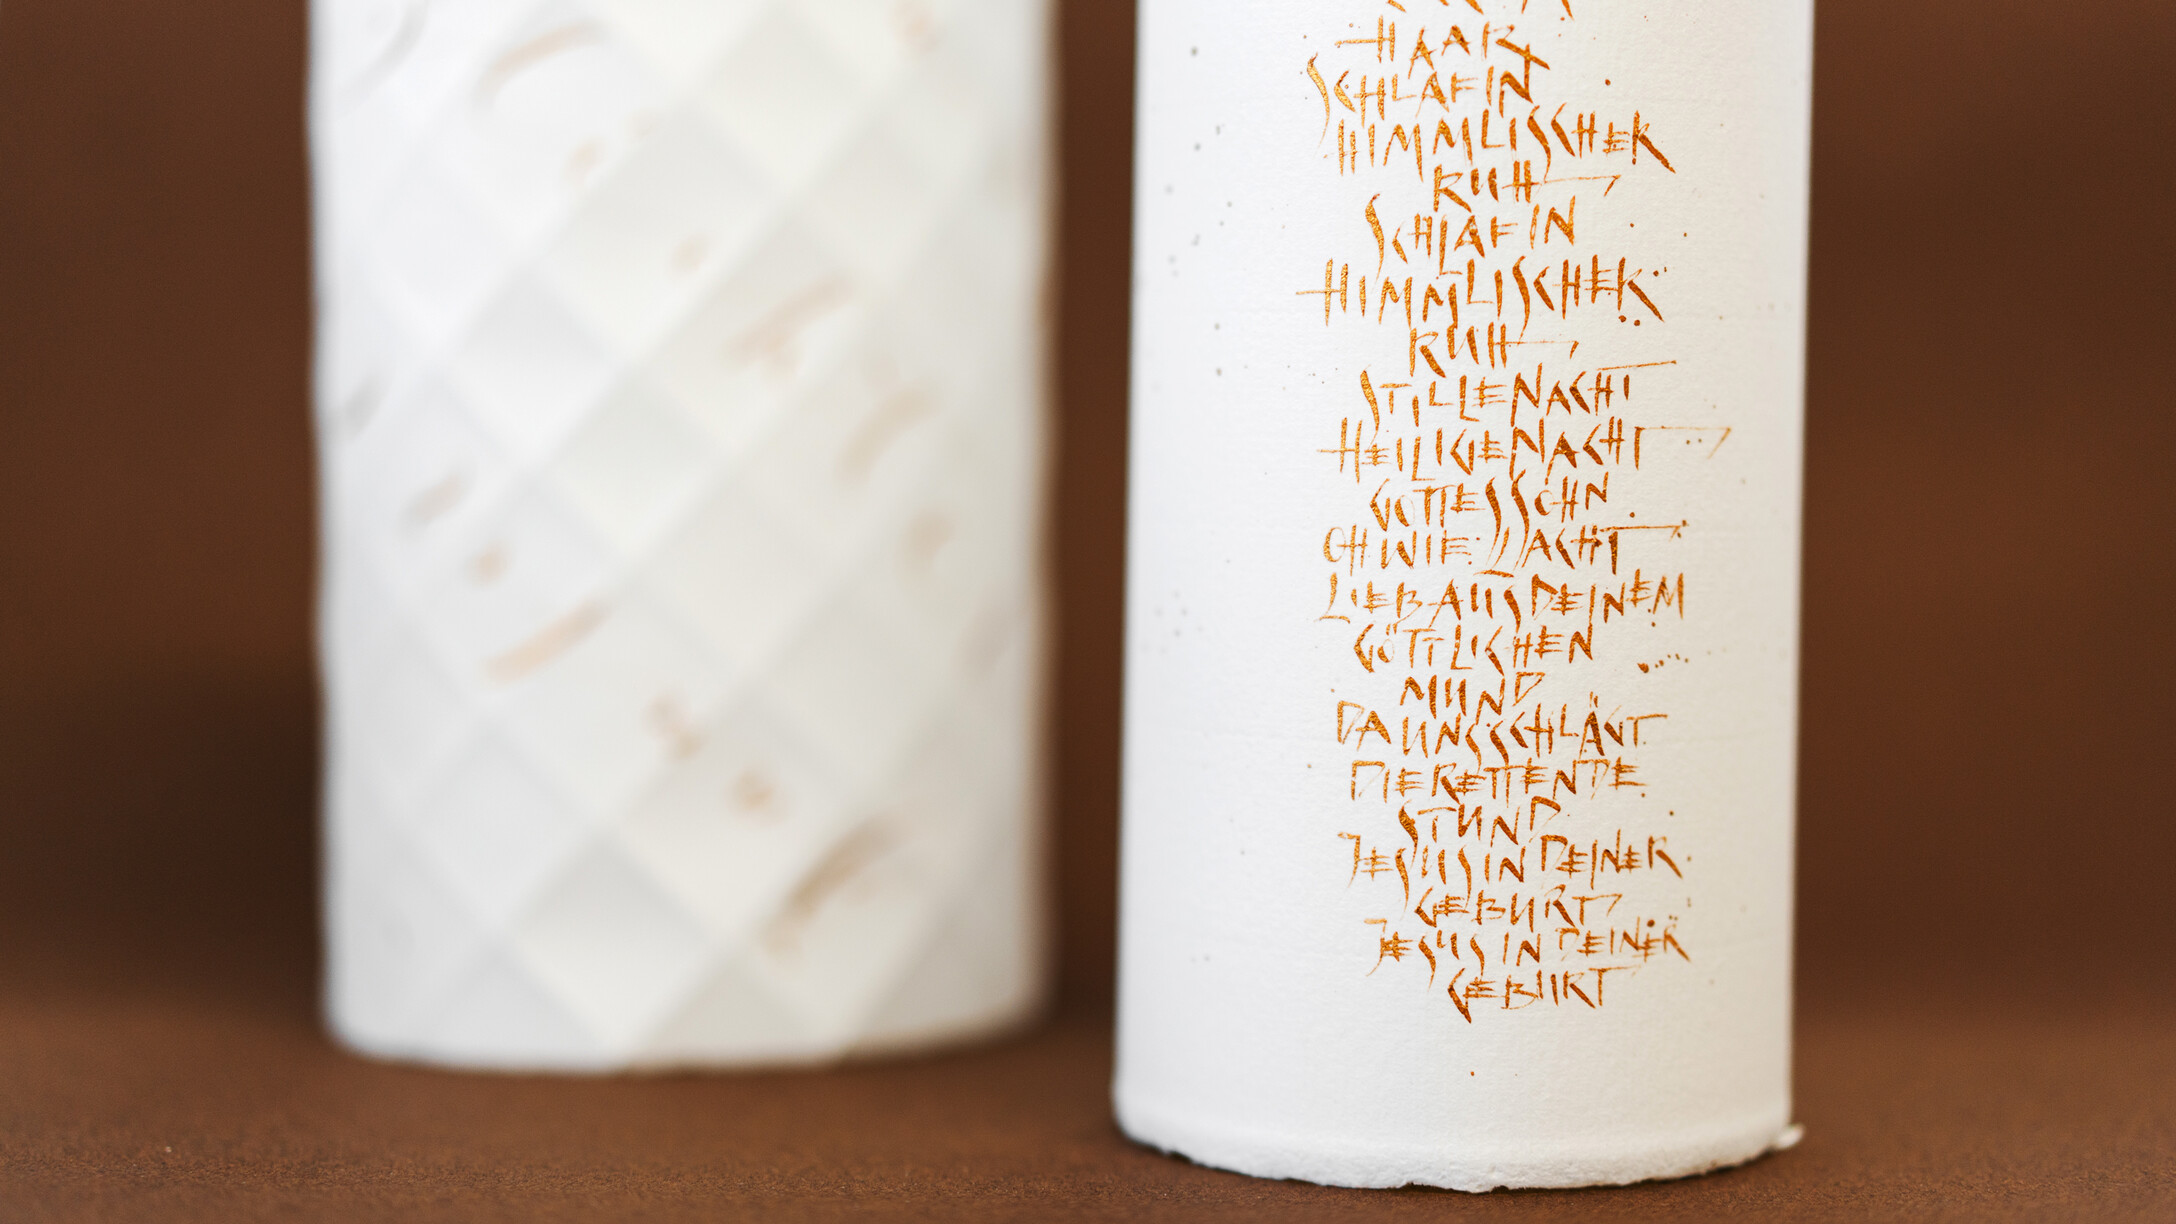 HAAR
SCHLAF IN
HIMMLISCHER
RUH
SCHLAF IN
HIMMLISCHER
RUH
STILLE NACHT
HEILIGE NACHT
GOTTES SOHN
OH WIE LACHT
LIEB AUS DEINEM
GÖTTLICHEN
MUND
DA UNS SCHLÄGT
DIE RETTENDE
STUND
JESUS IN DEINER
GEBURT
JESUS IN DEINER
GEBURT